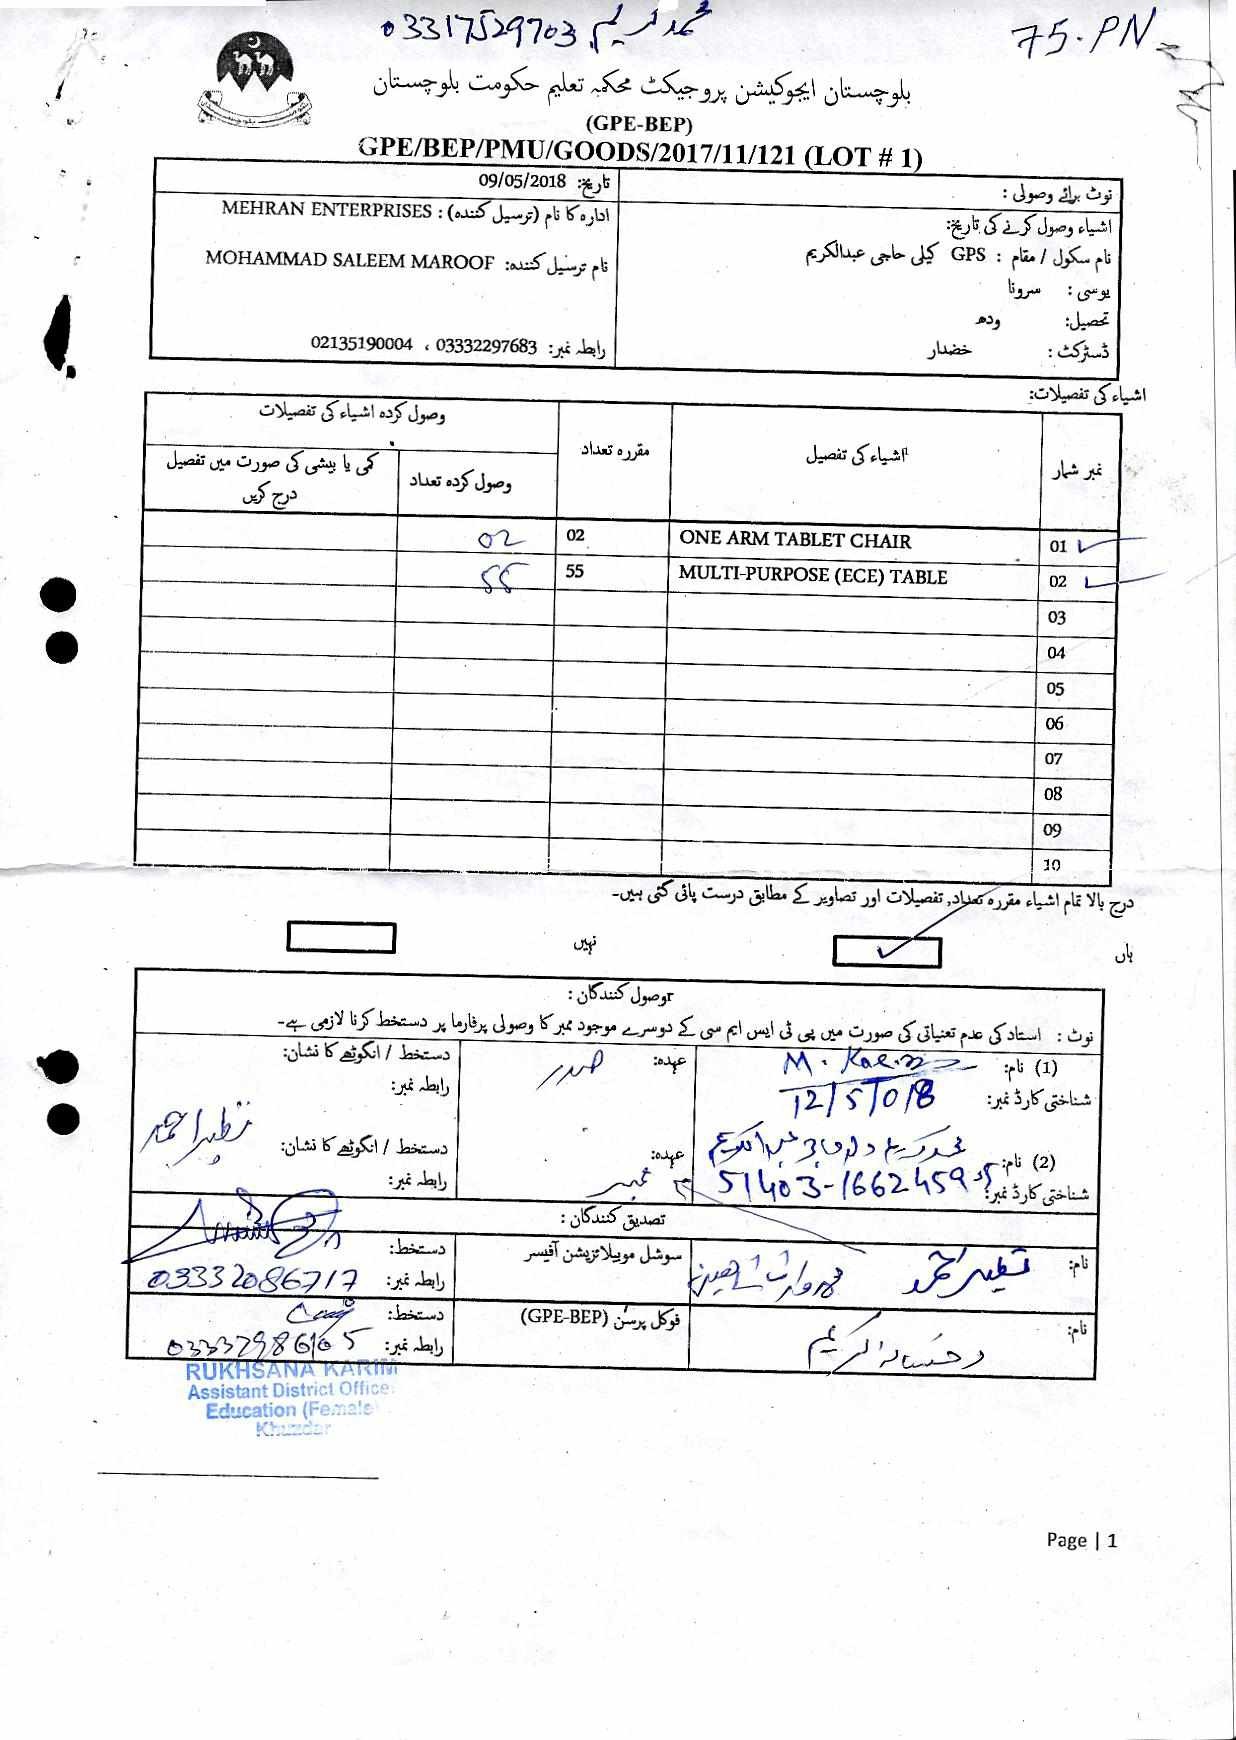 03317529703 محمد کریم
75-PN
بلوچستان ایجوکیشن پروجیکٹ محکمہ تعلیم حکومت بلوچستان
(GPE-BEP)
GPE/BEP/PMU/GOODS/2017/11/121 (LOT # 1)
نوٹ برائے وصولی :
اشیاء وصول کرنے کی تاریخ:
نام سکول / مقام : GPS کیلی حاجی عبدالکریم
یوسی : سرونا
تحصیل: ودھ
ڈسٹرکٹ : خضدار
تاریخ: 09/05/2018
ادارہ کا نام (ترسیل کنندہ) : MEHRAN ENTERPRISES
نام ترسیل کنندہ: MOHAMMAD SALEEM MAROOF
رابطہ نمبر: 03332297683 ، 02135190004
اشیاء کی تفصیلات:
نمبر شمار اشیاء کی تفصیل مقررہ تعداد وصول کردہ اشیاء کی تفصیلات
وصول کردہ تعداد کمی یا بیشی کی صورت میں تفصیل درج کریں
01 ONE ARM TABLET CHAIR 02 02
02 MULTI-PURPOSE (ECE) TABLE 55 55
03
04
05
06
07
08
09
10
درج بالا تمام اشیاء مقررہ تعداد, تفصیلات اور تصاویر کے مطابق درست پائی گئی ہیں۔
ہاں نہیں
وصول کنندگان :
نوٹ : استاد کی عدم تعنیاتی کی صورت میں پی ٹی ایس ایم سی کے دوسرے موجود ممبر کا وصولی پرفارما پر دستخط کرنا لازمی ہے۔
(1) نام: M. Karim عہدہ: صدر دستخط / انگوٹھے کا نشان:
شناختی کارڈ نمبر: 12/5/018 رابطہ نمبر:
(2) نام: محمد کریم ولد حاجی عبدالکریم عہدہ: ممبر دستخط / انگوٹھے کا نشان:
شناختی کارڈ نمبر: 51403-1662459 رابطہ نمبر:
تصدیق کنندگان :
نام: سوشل موبیلائزیشن آفیسر دستخط:
رابطہ نمبر: 03332086717
نام: رخسانہ کریم فوکل پرسن (GPE-BEP) دستخط:
رابطہ نمبر: 03337986105
RUKHSANA KARIM
Assistant District Office
Education (Female
Khuzdar
Page | 1